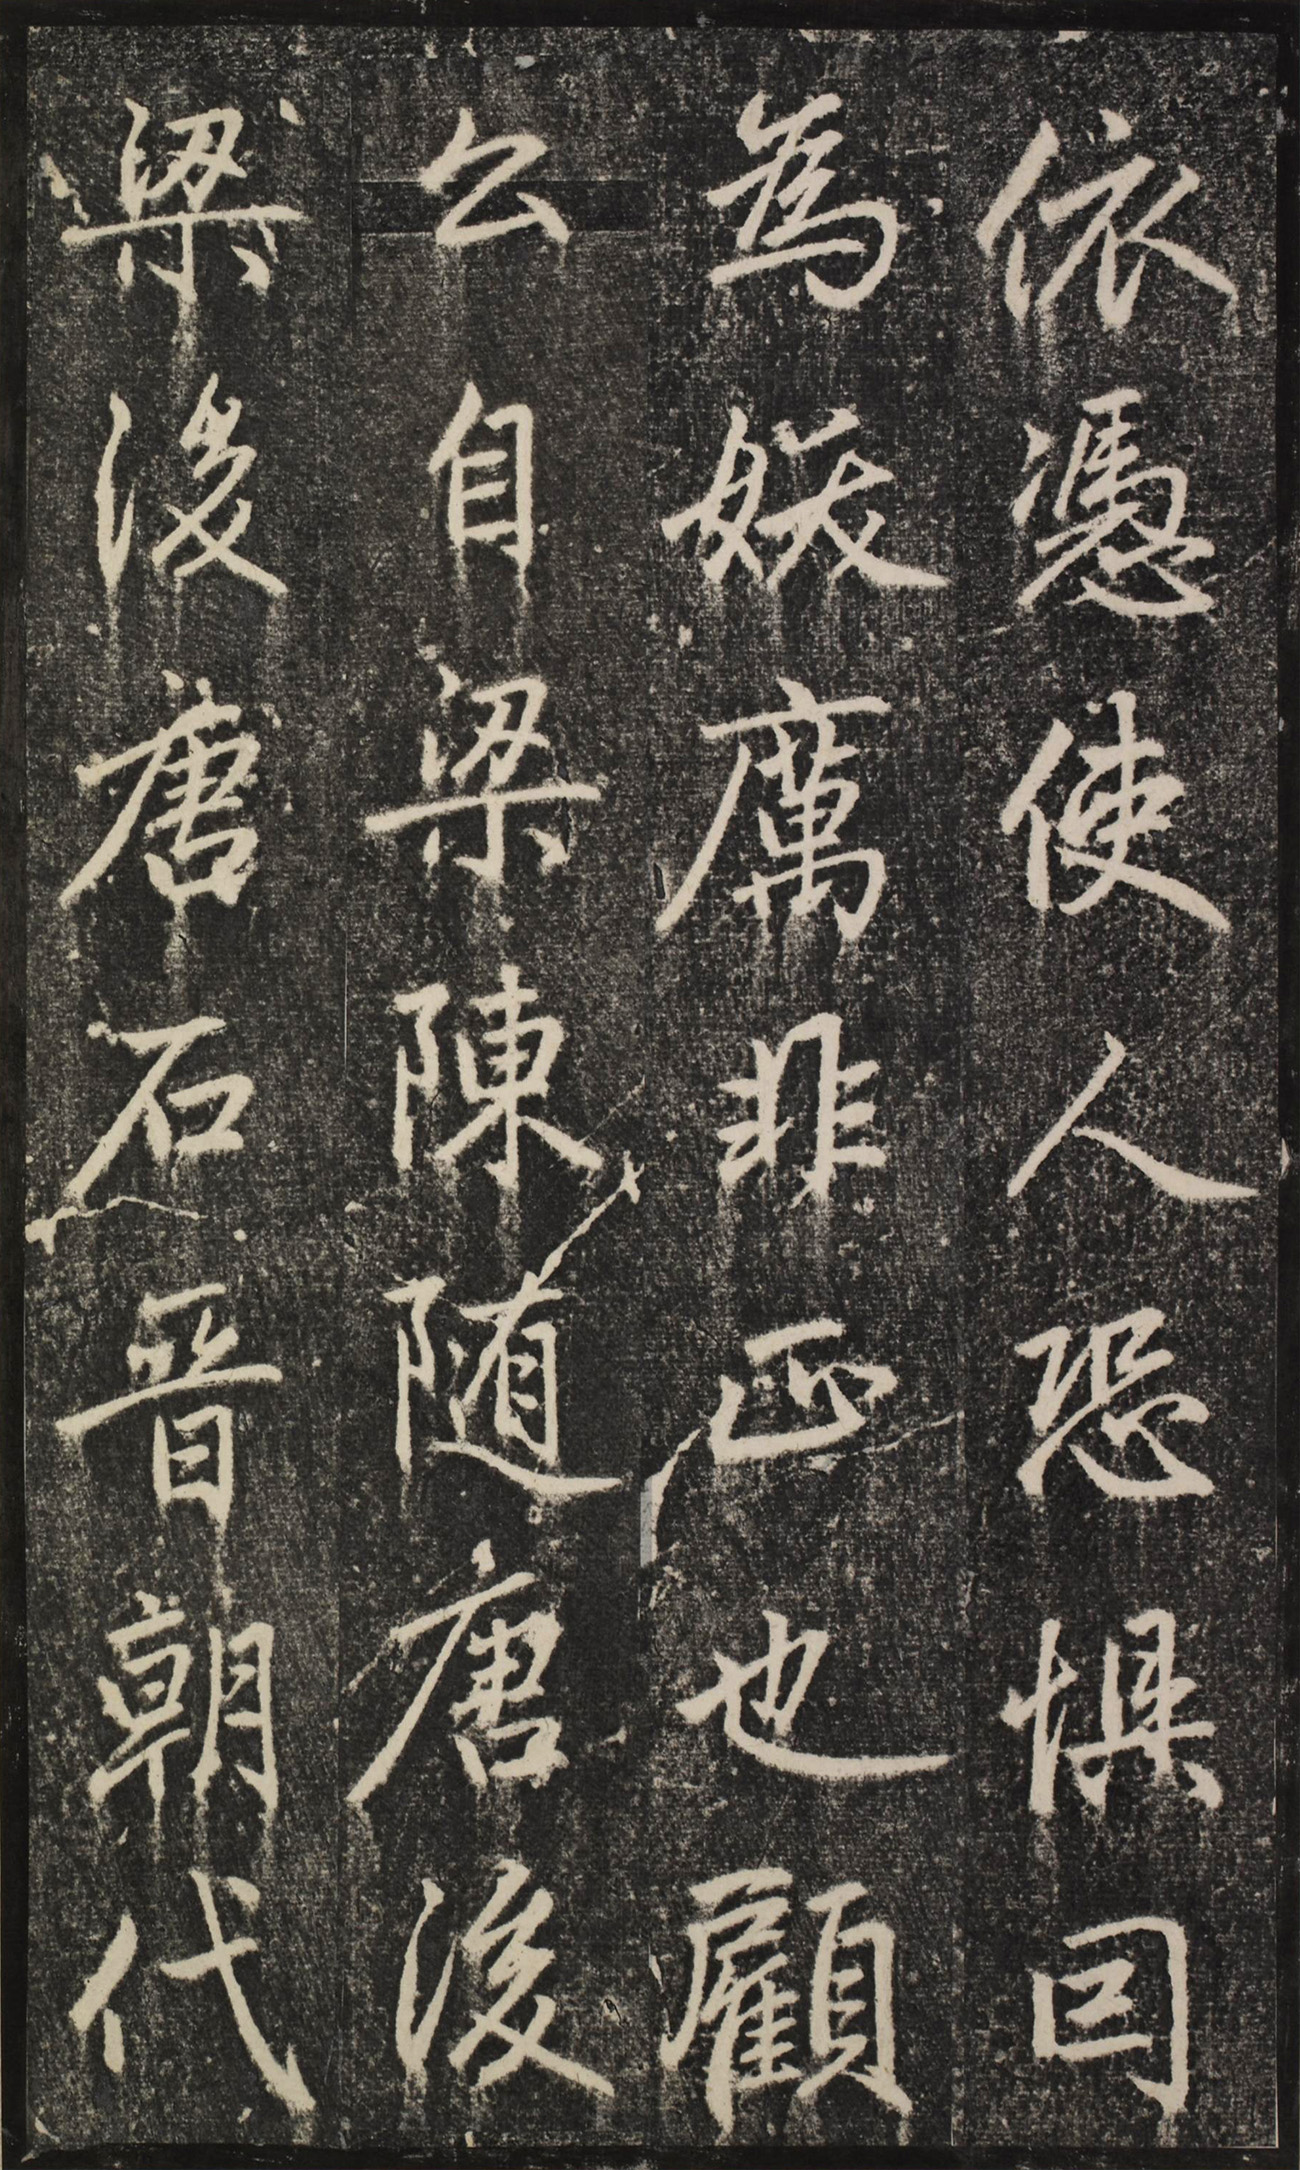 依憑使人恐懼囙
為妖厲非正也顧
公自梁陳随唐後
梁後唐石晉朝代